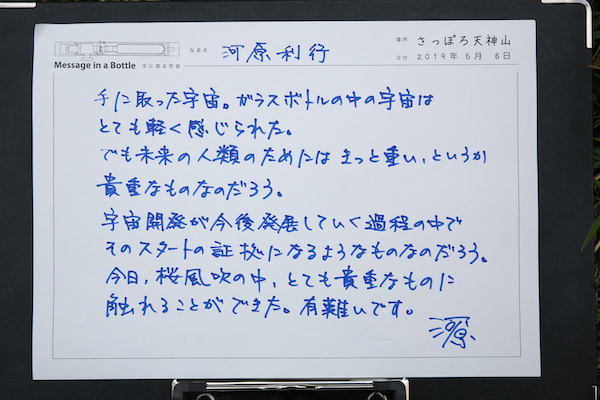 なまえ 河原利行
場所 さっぽろ天神山
Message in a Bottle 手に取る宇宙
日付 2019年 5月 6日
手に取った宇宙。ガラスボトルの中の宇宙は
とても軽く感じられた。
でも未来の人類のためにはきっと重い、というか
貴重なものなのだろう。
宇宙開発が今後発展していく過程の中で
そのスタートの証拠になるようなものなのだろう。
今日、桜風吹の中、とても貴重なものに
触れることができた。有難いです。
河原